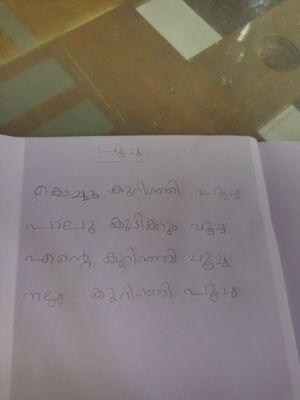 പൂച്ച
കൊച്ചു കുറിഞ്ഞി പൂച്ച
പാലു കുടിക്കും പൂച്ച
എന്റെ കുറിഞ്ഞി പൂച്ച
നല്ല കുറിഞ്ഞി പൂച്ച